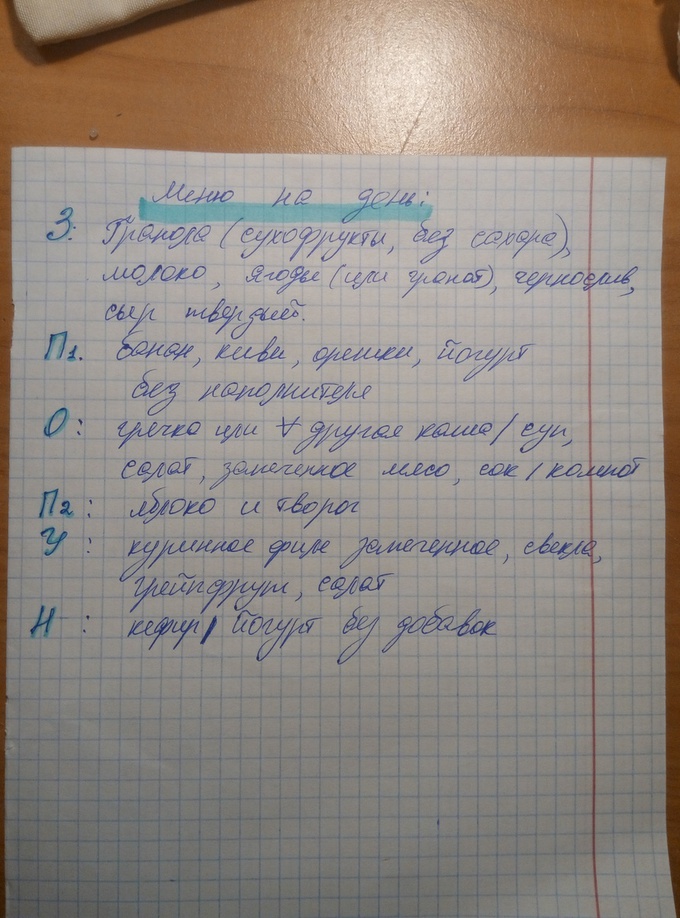 Меню на день:
З. Гранола (сухофрукты, без сахара),
молоко, ягоды (или гранат), чернослив,
сыр твердый.
П1. банан, киви, орешки, йогурт
без наполнителя
О: гречка или ∀ другая каша / суп,
салат, запеченное мясо, сок / компот
П2: яблоко и творог
У: куринное филе запеченное, свекла,
грейпфрут, салат
Н: кефир / йогурт без добавок